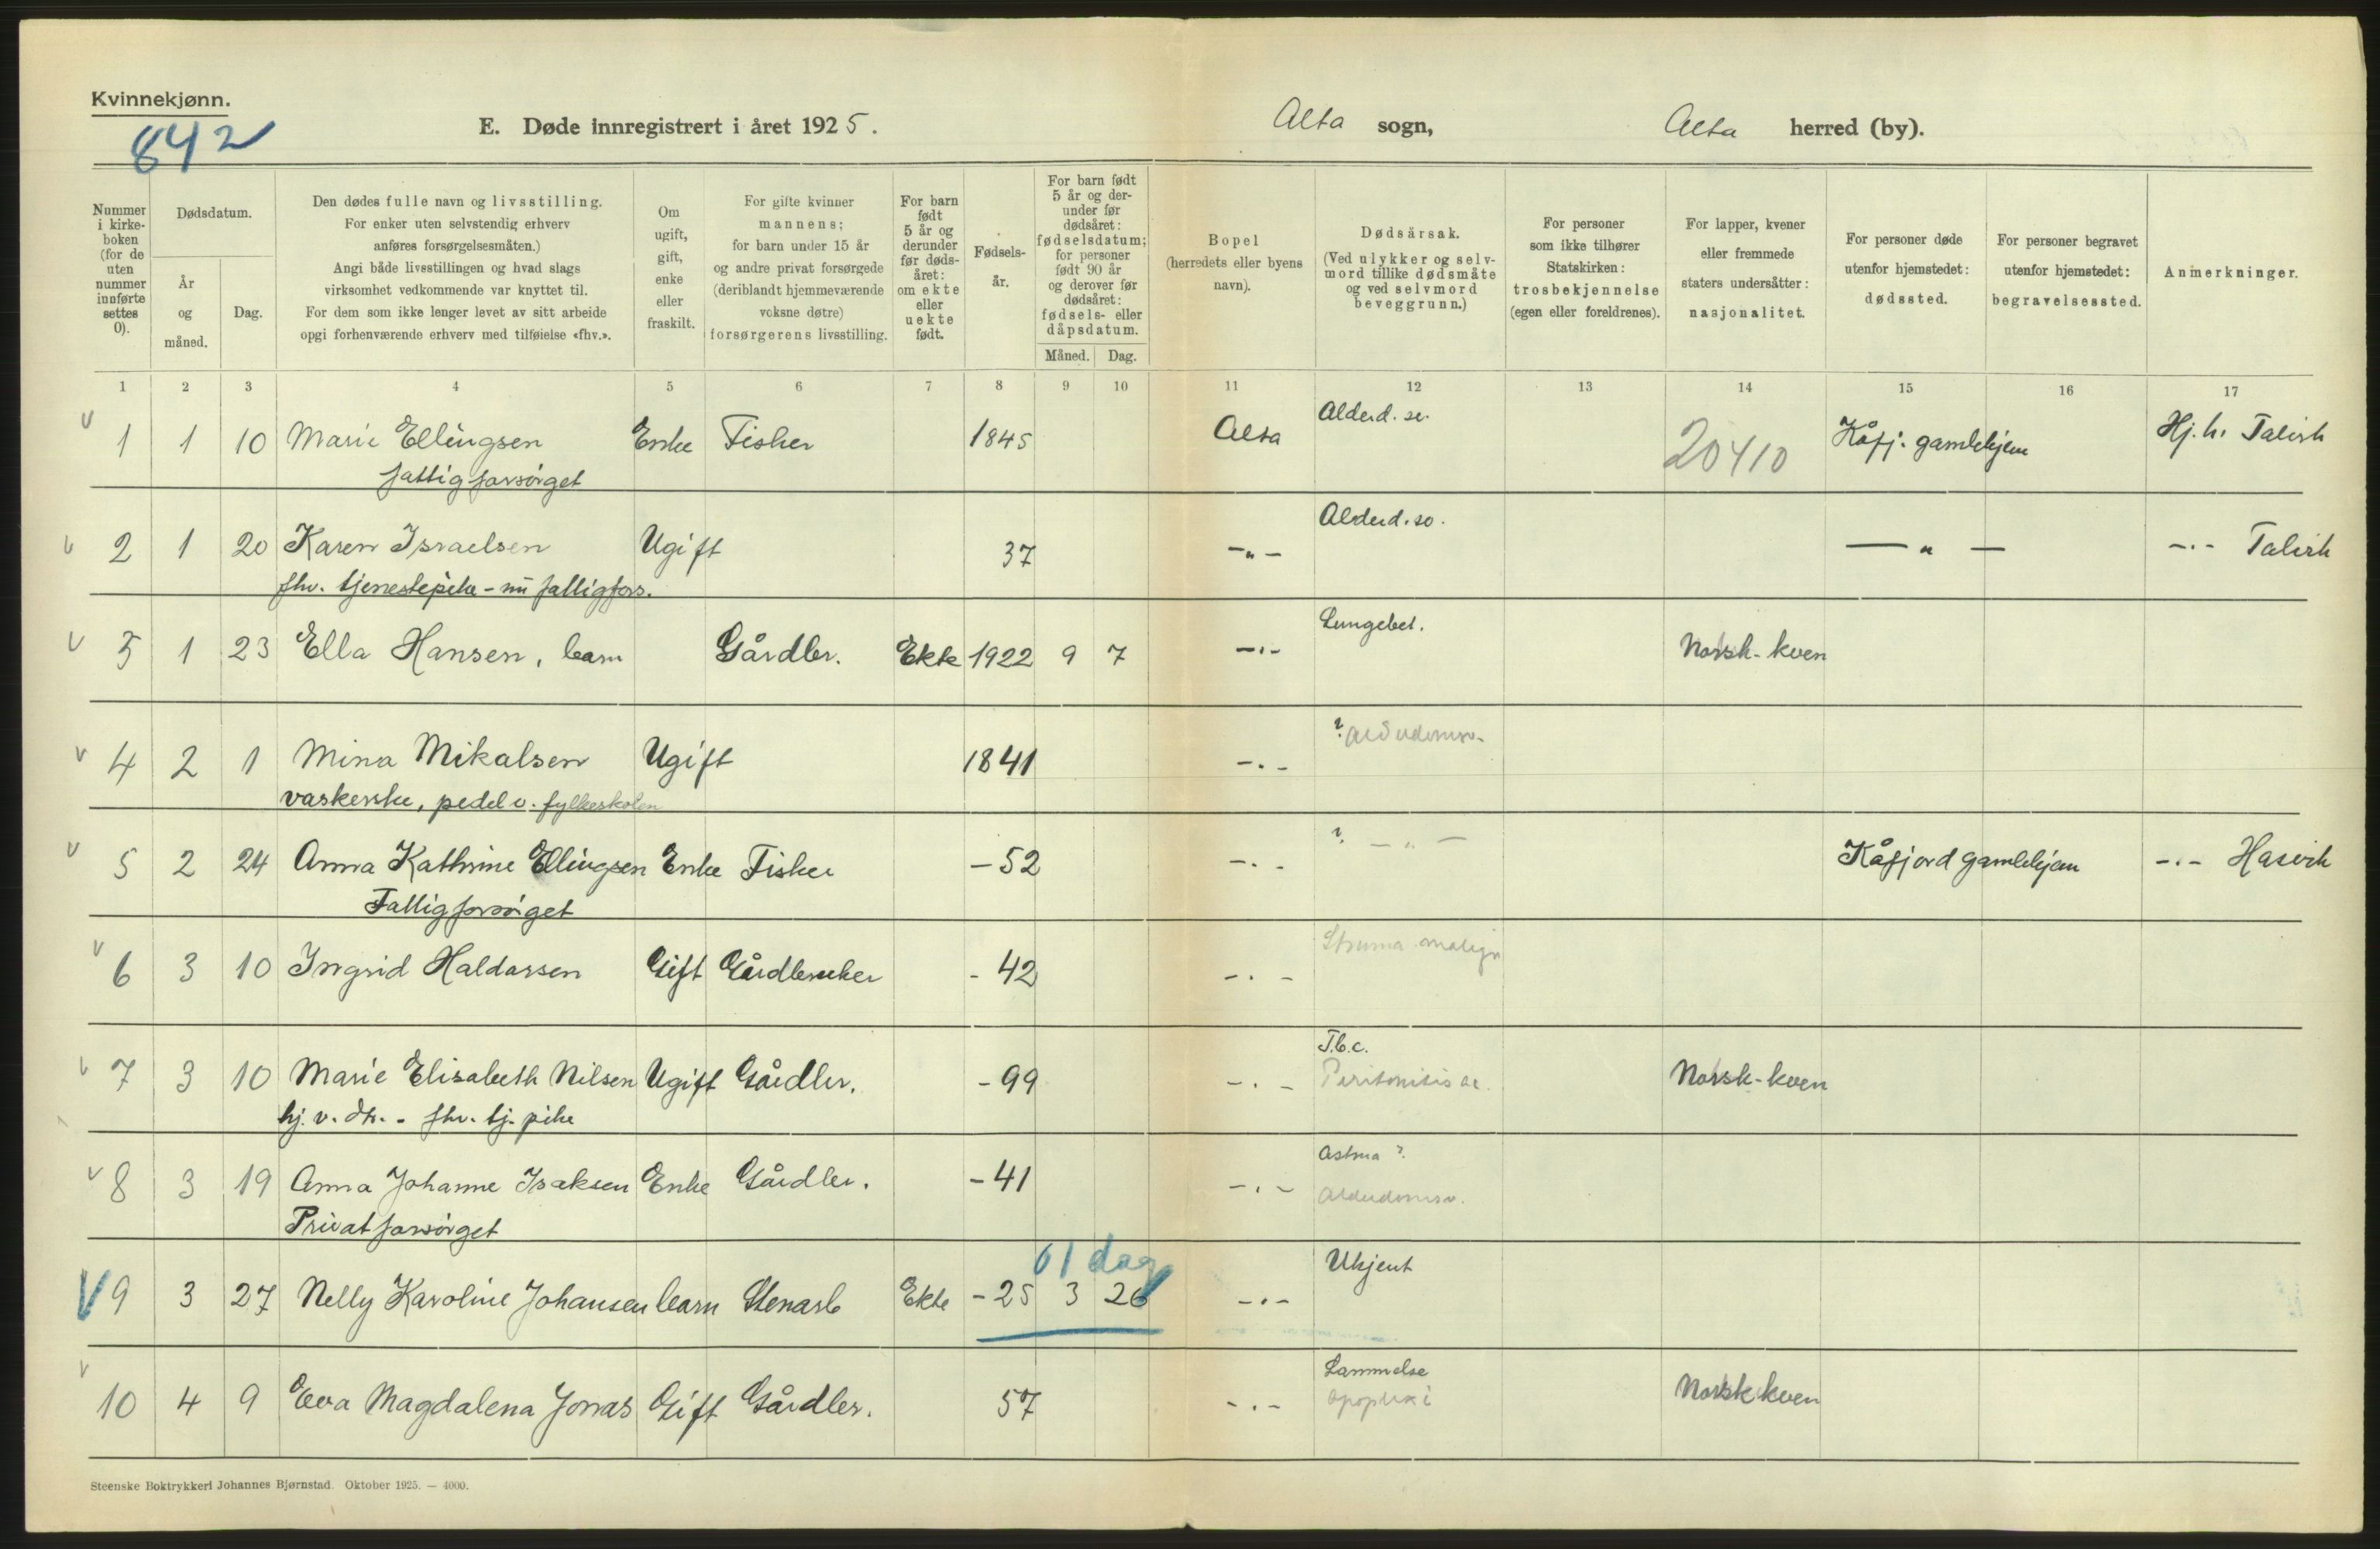 Kvinnekjønn.
842
E. Døde innregistrert i året 1925.
Alta sogn,
Alta herred (by).
Nummer i kirke-boken (for de uten nummer innførte settes 0).
Dødsdatum.
År og måned.
Dag.
Den dødes fulle navn og livsstilling.
For enker uten selvstendig erhverv
anføres forsørgelsesmåten.)
Angi både livsstillingen og hvad slags
virksomhet vedkommende var knyttet til.
For dem som ikke lenger levet av sitt arbeide
opgi forhenværende erhverv med tilføielse «fhv.».
Om ugift, gift, enke eller fraskilt.
For gifte kvinner
mannens;
for barn under 15 år
og andre privat forsørgede
(deriblandt hjemmeværende
voksne døtre)
forsørgerens livsstilling.
For barn født 5 år og derunder før døds-året: om ekte eller uekte født.
Fødsels-år.
For barn født 5 år og der-under før dødsåret: fødselsdatum; for personer født 90 år og derover før dødsåret: fødsels- eller dåpsdatum.
Måned. Dag.
Bopel
(herredets eller byens
navn).
Dødsårsak.
(Ved ulykker og selv-
mord tillike dødsmåte
og ved selvmord
beveggrunn.)
For personer
som ikke tilhører
Statskirken:
trosbekjennelse
(egen eller foreldrenes).
For lapper, kvener
eller fremmede
staters undersåtter:
nasjonalitet.
For personer døde
utenfor hjemstedet:
dødssted.
For personer begravet
utenfor hjemstedet:
begravelsessted.
Anmerkninger.
1 2 3 4 5 6 7 8 9 10 11 12 13 14 15 16 17
v 1 1 10 Marie Ellingsen Enke Fisker 1845 Alta Alderd.sv. 20410 Kåfj. gamlehjem Hj.h. Talvik
fattigforsørget
v 2 1 20 Karen Israelsen Ugift 37 -"- Alderd.sv. — " — -"- Talvik
fhv. tjenestepike - nu fattigfors.
v 3 1 23 Ella Hansen, barn Gårdbr. Ekte 1922 9 7 -"- Lungebet. Norsk-kven
v 4 2 1 Mina Mikalsen Ugift 1841 -"- ? Alderdomsv.
vaskerske, pedel v. fylkeskolen
v 5 2 24 Anna Kathrine Ellingsen Enke Fisker -52 -"- ? -"- Kåfjord gamlehjem -"- Hasvik
Fattigforsørget
v 6 3 10 Ingrid Haldorsen Gift Gårdbruker -42 -"- Struma malign
v 7 3 10 Marie Elisabeth Nilsen Ugift Gårdbr. -99 -"- T.b.c. Norsk-kven
Peritonitis ac.
hj. v. dtr. - fhv. tj. pike
v 8 3 19 Anna Johanne Isaksen Enke Gårdbr. -41 -"- Astma ?
Alderdomsv.
Privatforsørget
61 dag
V 9 3 27 Nelly Karoline Johansen barn Stenarb Ekte -25 3 26 -"- Ukjent
v 10 4 9 Eva Magdalena Jonas Gift Gårdbr. 57 -"- Lammelse Norsk kven
apoplexi
Steenske Boktrykkeri Johannes Bjørnstad. Oktober 1925. — 4000.